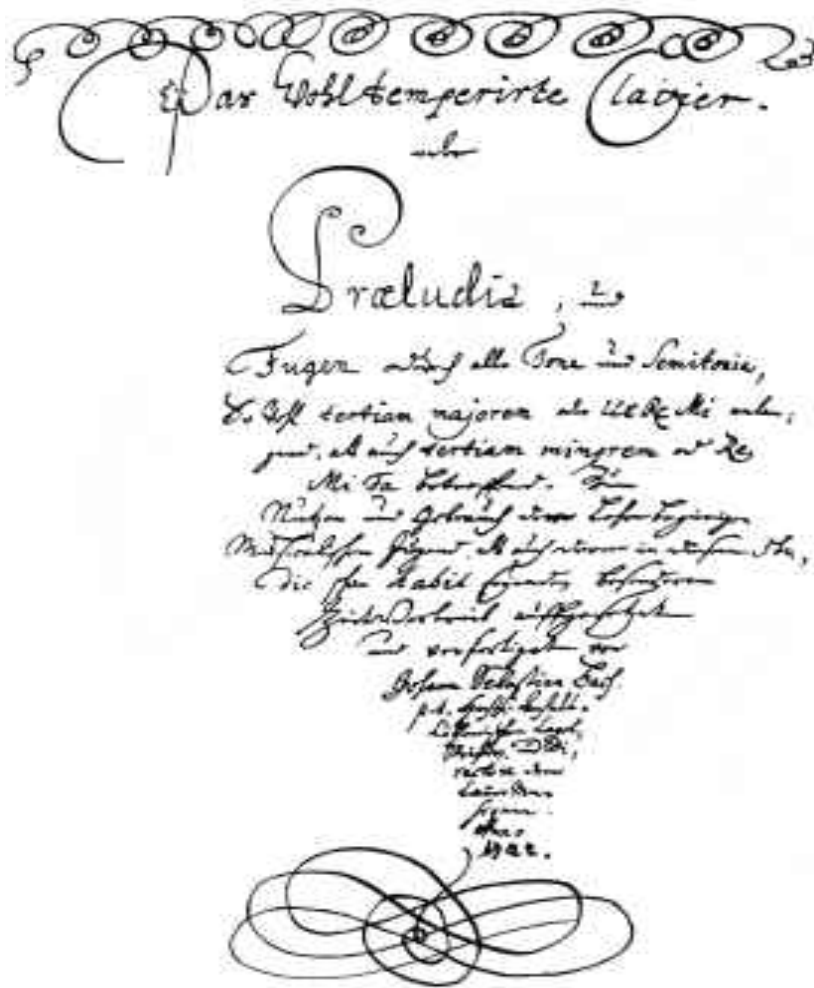 Das Wohltemperirte Clavier.
oder
Præludia, und
Fugen durch alle Tone und Semitonia,
So wohl tertiam majorem als Ut Re Mi anlan,
gend, als auch tertiam minorem od Re
Mi Fa betreffend. Zum
Nutzen und Gebrauch der Lehrbegierigen
Musicalischen Jugend, als auch derer in diesem stu,
dio schon habil seyenden besonderem
Zeitvertreib auffgesetzet
und verfertiget von
Johann Sebastian Bach.
p. t. Anhalt-
Capel,
Meister, Di,
rectore derer
Camer
Anno
1722.